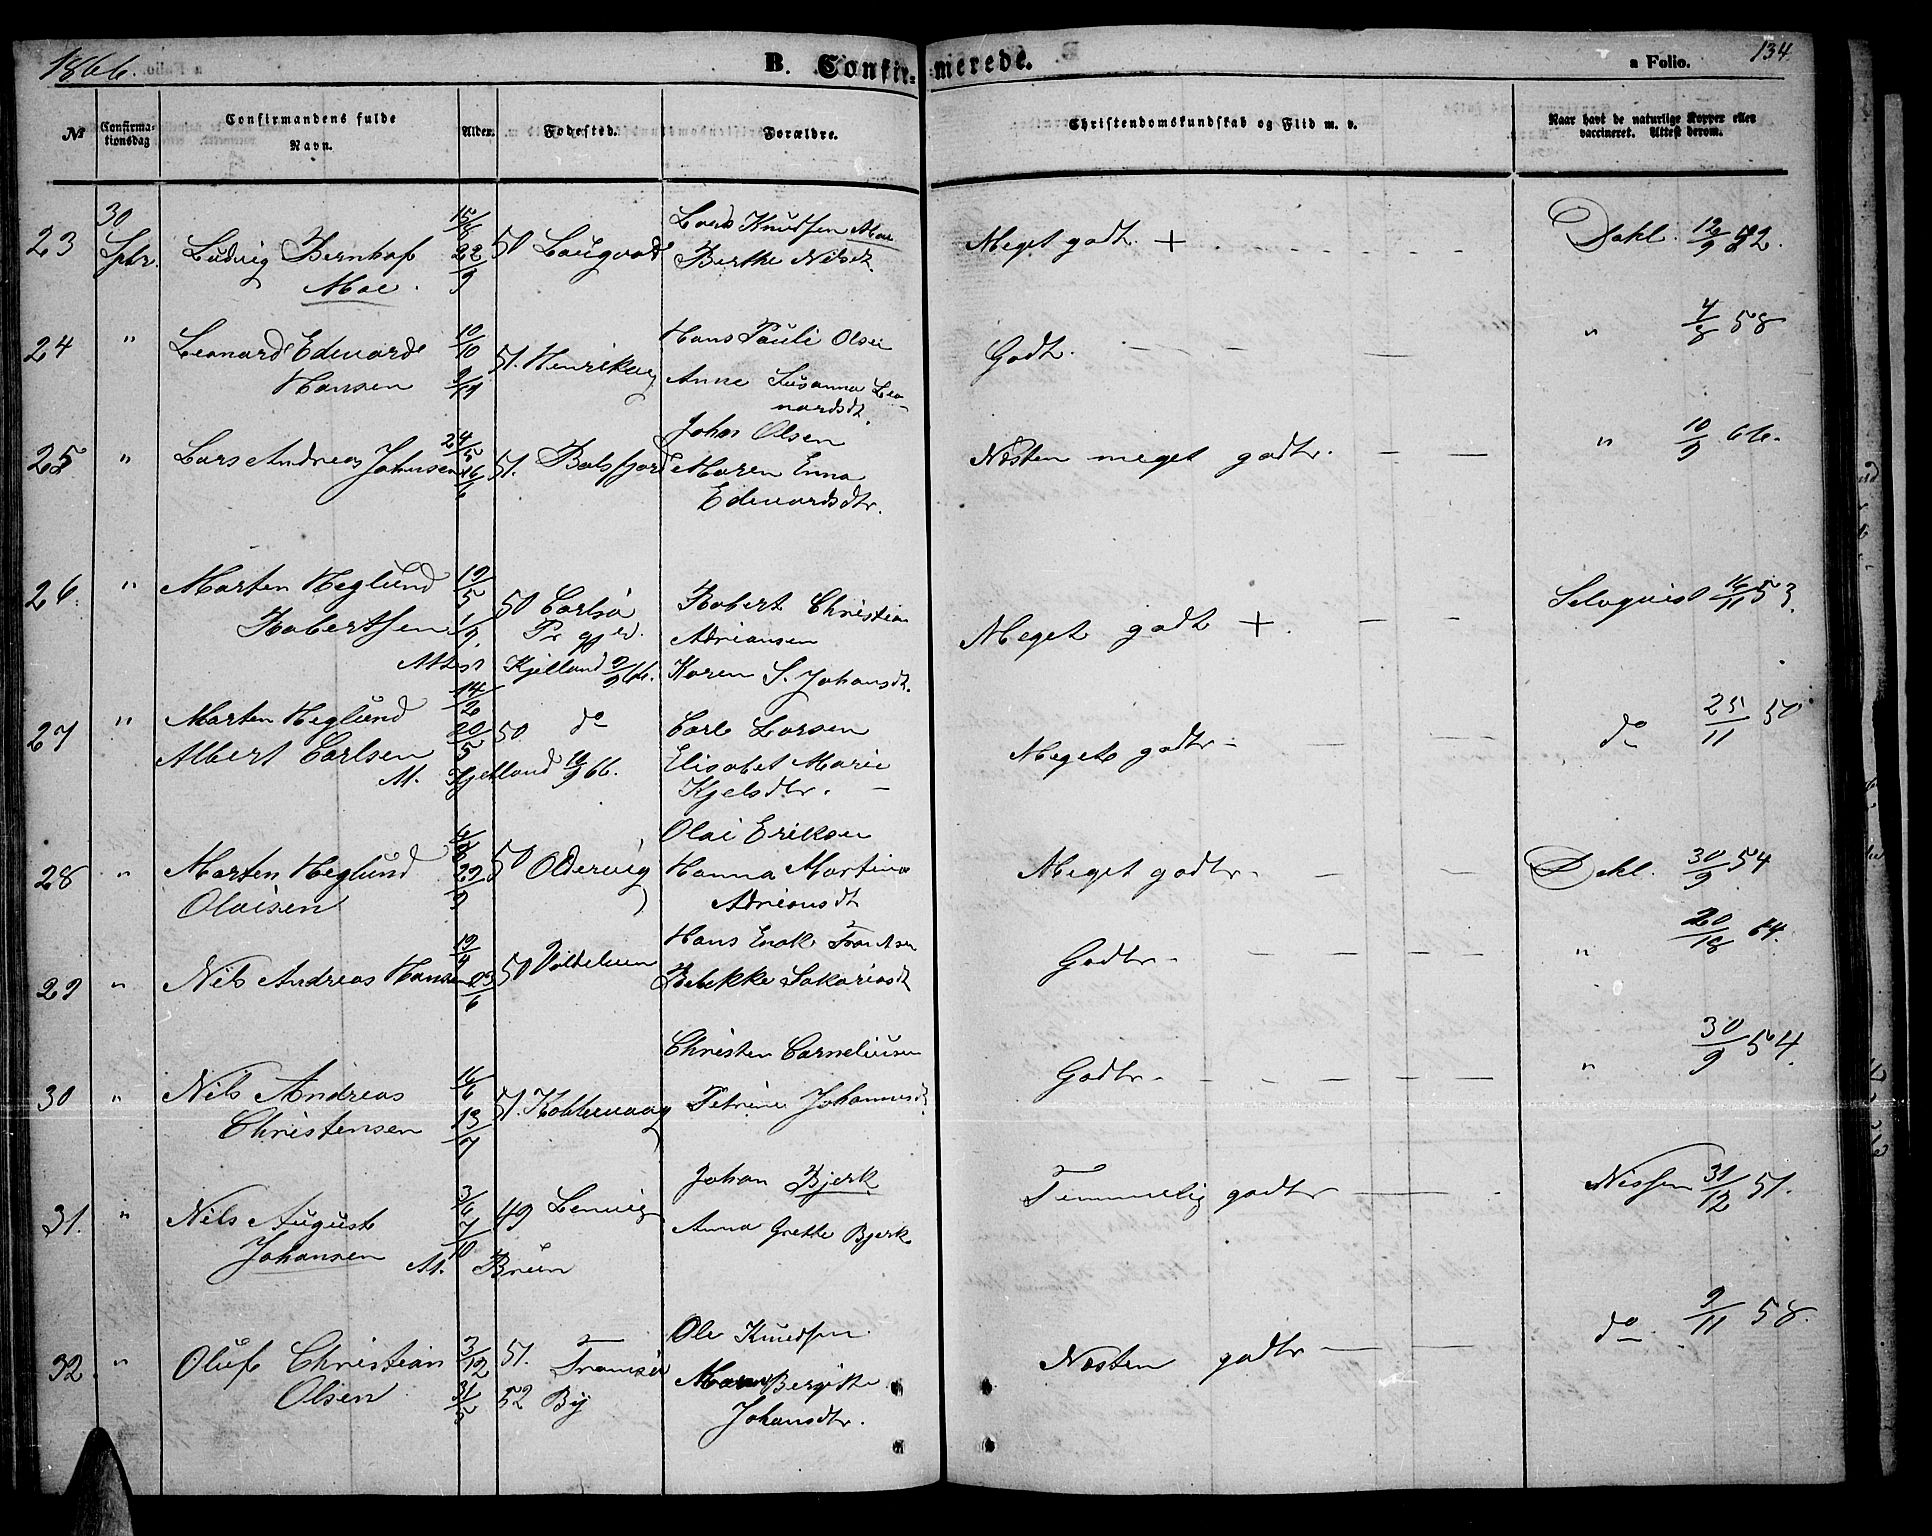 1866.
B. Confir-
merede.
a Folio.
134.
No
Confirma-
tionsdag
Confirmandens fulde
Navn.
Alder.
Fødested.
Forældre.
Christendomskundskab og Flid m. v.
Naar havt de naturlige Kopper eller
vaccineret. Attest derom.
23
30
Sptbr.
Ludvig Bernhof
Moe.
22/9
50
Lars Knudsen Moe
Berthe Nilsd.
Meget godt. +
Dahl. 12/9 52.
24
"
Leonard Edvard
Hansen
10/10
9/11
51.
Henrikvig
Hans Pauli Olsen
Anne Susanna Leo-
nardsdt.
Godt.
"
4/8 58
25
"
Lars Andreas Johnsen
24/5
16/6
51.
Balsfjord
Johan Olsen
Maren Enna
Edvardsdtr.
Næsten meget godt.
"
10/9 66.
26.
"
Morten Heglund
Robertsen
19/5
1/9
50
Carlsø
Pr gjd.
Attest
Kjelland 9/9 66.
Robert Christian
Adriansen
Karen S. Johansdt.
Meget godt +.
16/11 53
27
"
Morten Heglund
Albert Carlsen
14/2
20/5
50
do
At. Kjelland 16/9 66.
Carl Larsen
Elisabet Marie
Kjelsdtr.
Meget godt
do
25/11 50
28
"
Morten Heglund
Olaisen
22/9
50
Oldervig
Olai Eriksen
Hanna Martina
Adriansdt
Meget godt
Dahl. 30/9 54
29
"
Nils Andreas Hansen
19/4
23/6
50
Hans Enok Frantsen
Rebekke Sakariasdt
Godt
"
20/18 64.
30
"
Nils Andreas
Christensen
16/6
13/7
51.
Kobbevaag
Christen Corneliusen
Petrine Johannesdt.
Godt
"
30/9 54.
31.
"
Nils August
Johansen
3/6
7/10
49
Lenvig
At. Bruun
Johan Bjerk
Anna Grethe Bjerk
Temmelig godt
Nissen 31/12 51.
32.
"
Oluf Christian
Olsen
3/12
31/5
51.
52
Tromsø
By
Ole Knudsen
Maren Bergitte
Johansdtr.
Næsten godt
do
9/11 58.